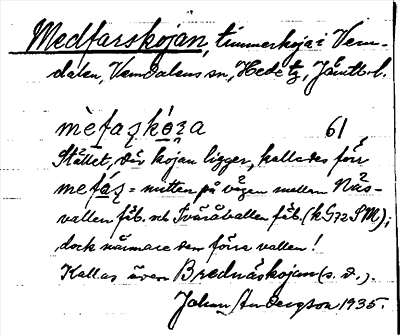 Medfarskojan, timmerkoja i Vem-
dalen, Vemdalens sn, Hede tg, Jämtl. l.
mèfaskóza 61
Stället, där kojan ligger, kallades förr
mefás = mitten på vägen mellan Näs-
vallen fäb. och Tväråvallen fäb. (k G72 SM);
dock närmare den förra vallen!
Kallas även Brednäskojan (s. d.).
Johan Andersson 1935.